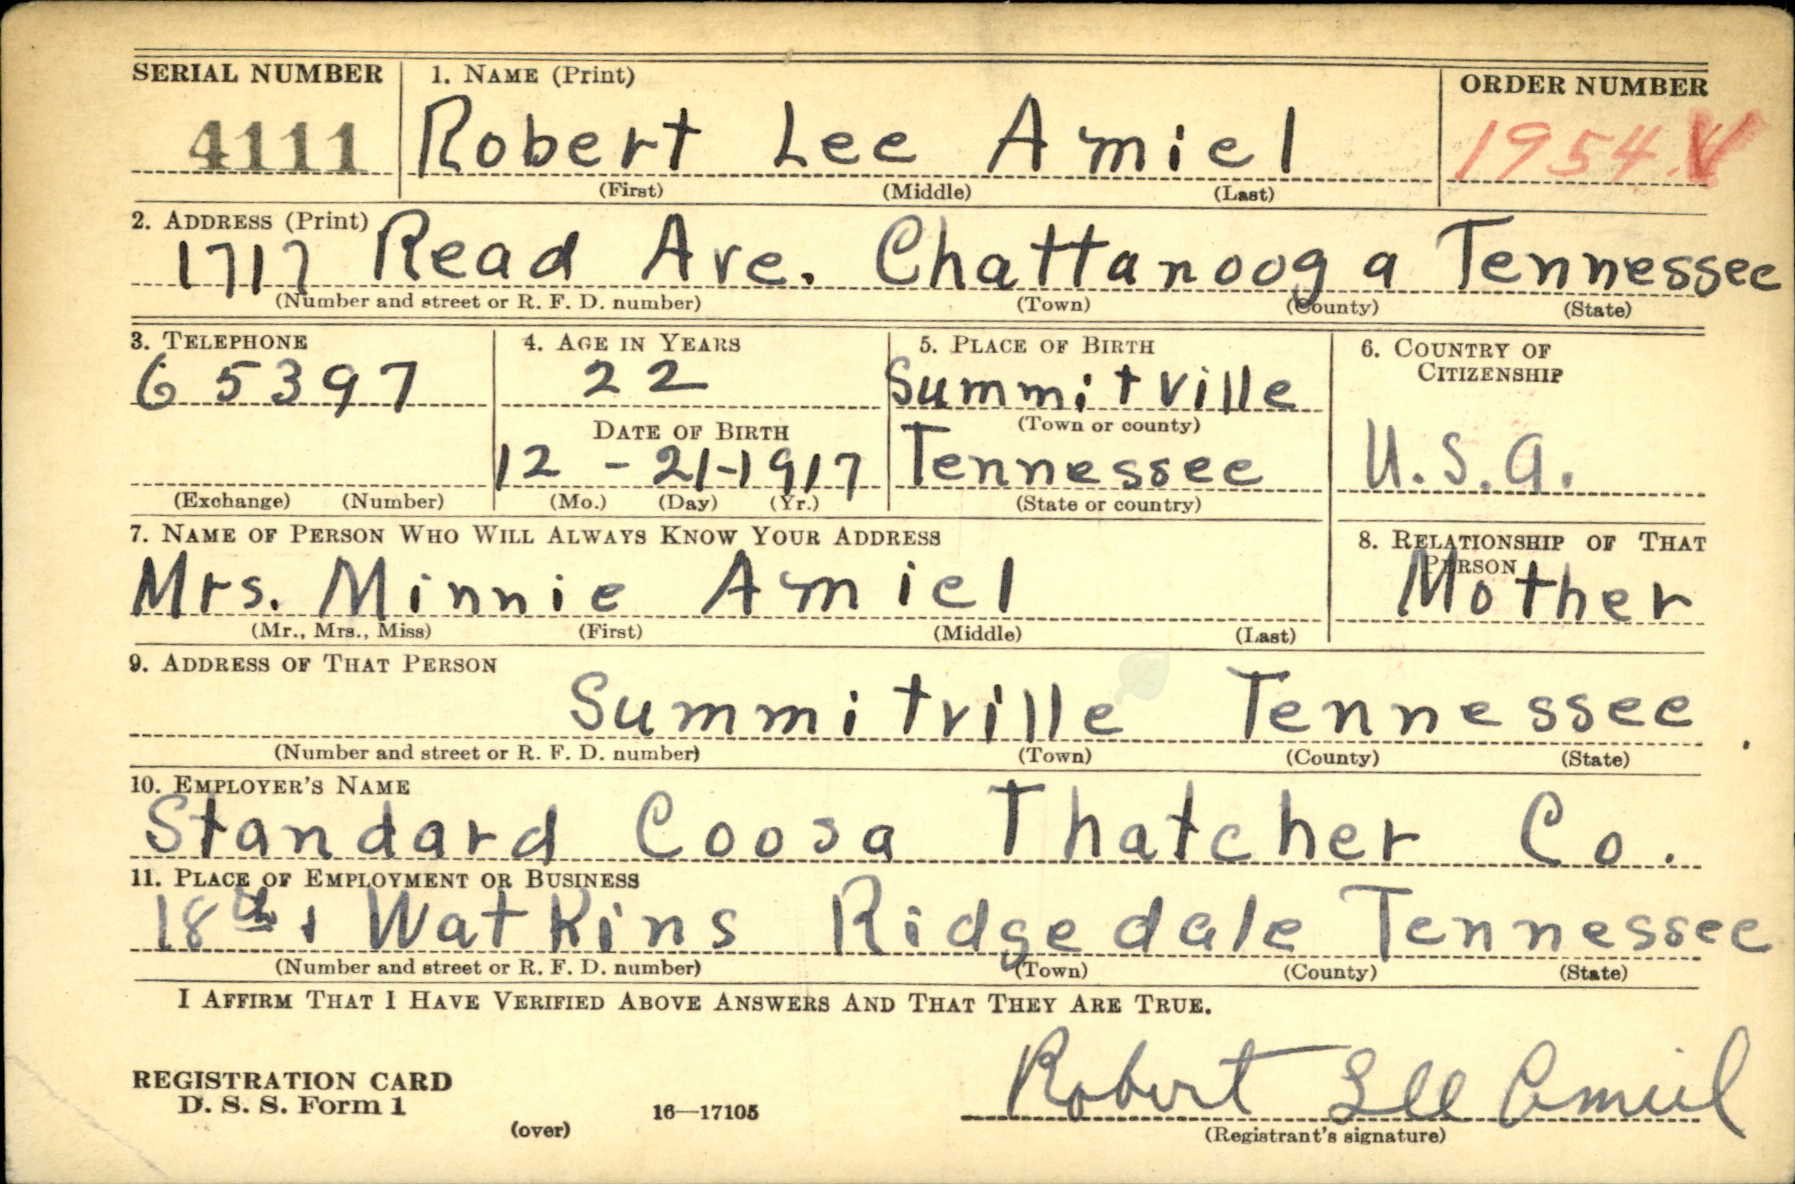 SERIAL NUMBER
4111
1. NAME (Print)
Robert Lee Amiel
(First) (Middle) (Last)
ORDER NUMBER
1954.V
2. ADDRESS (Print)
1717 Read Ave. Chattanooga Tennessee
(Number and street or R. F. D. number) (Town) (County) (State)
3. TELEPHONE
65397
(Exchange) (Number)
4. AGE IN YEARS
22
DATE OF BIRTH
12-21-1917
(Mo.) (Day) (Yr.)
5. PLACE OF BIRTH
Summitville
(Town or county)
Tennessee
(State or country)
6. COUNTRY OF
CITIZENSHIP
U.S.A.
7. NAME OF PERSON WHO WILL ALWAYS KNOW YOUR ADDRESS
Mrs. Minnie Amiel
(Mr., Mrs., Miss) (First) (Middle) (Last)
8. RELATIONSHIP OF THAT
PERSON
Mother
9. ADDRESS OF THAT PERSON
Summitville Tennessee
(Number and street or R. F. D. number) (Town) (County) (State)
10. EMPLOYER'S NAME
Standard Coosa Thatcher Co.
11. PLACE OF EMPLOYMENT OR BUSINESS
18th & Watkins Ridgedale Tennessee
(Number and street or R. F. D. number) (Town) (County) (State)
I AFFIRM THAT I HAVE VERIFIED ABOVE ANSWERS AND THAT THEY ARE TRUE.
REGISTRATION CARD
D. S. S. Form 1
(over)
16—17105
Robert Lee Amiel
(Registrant's signature)